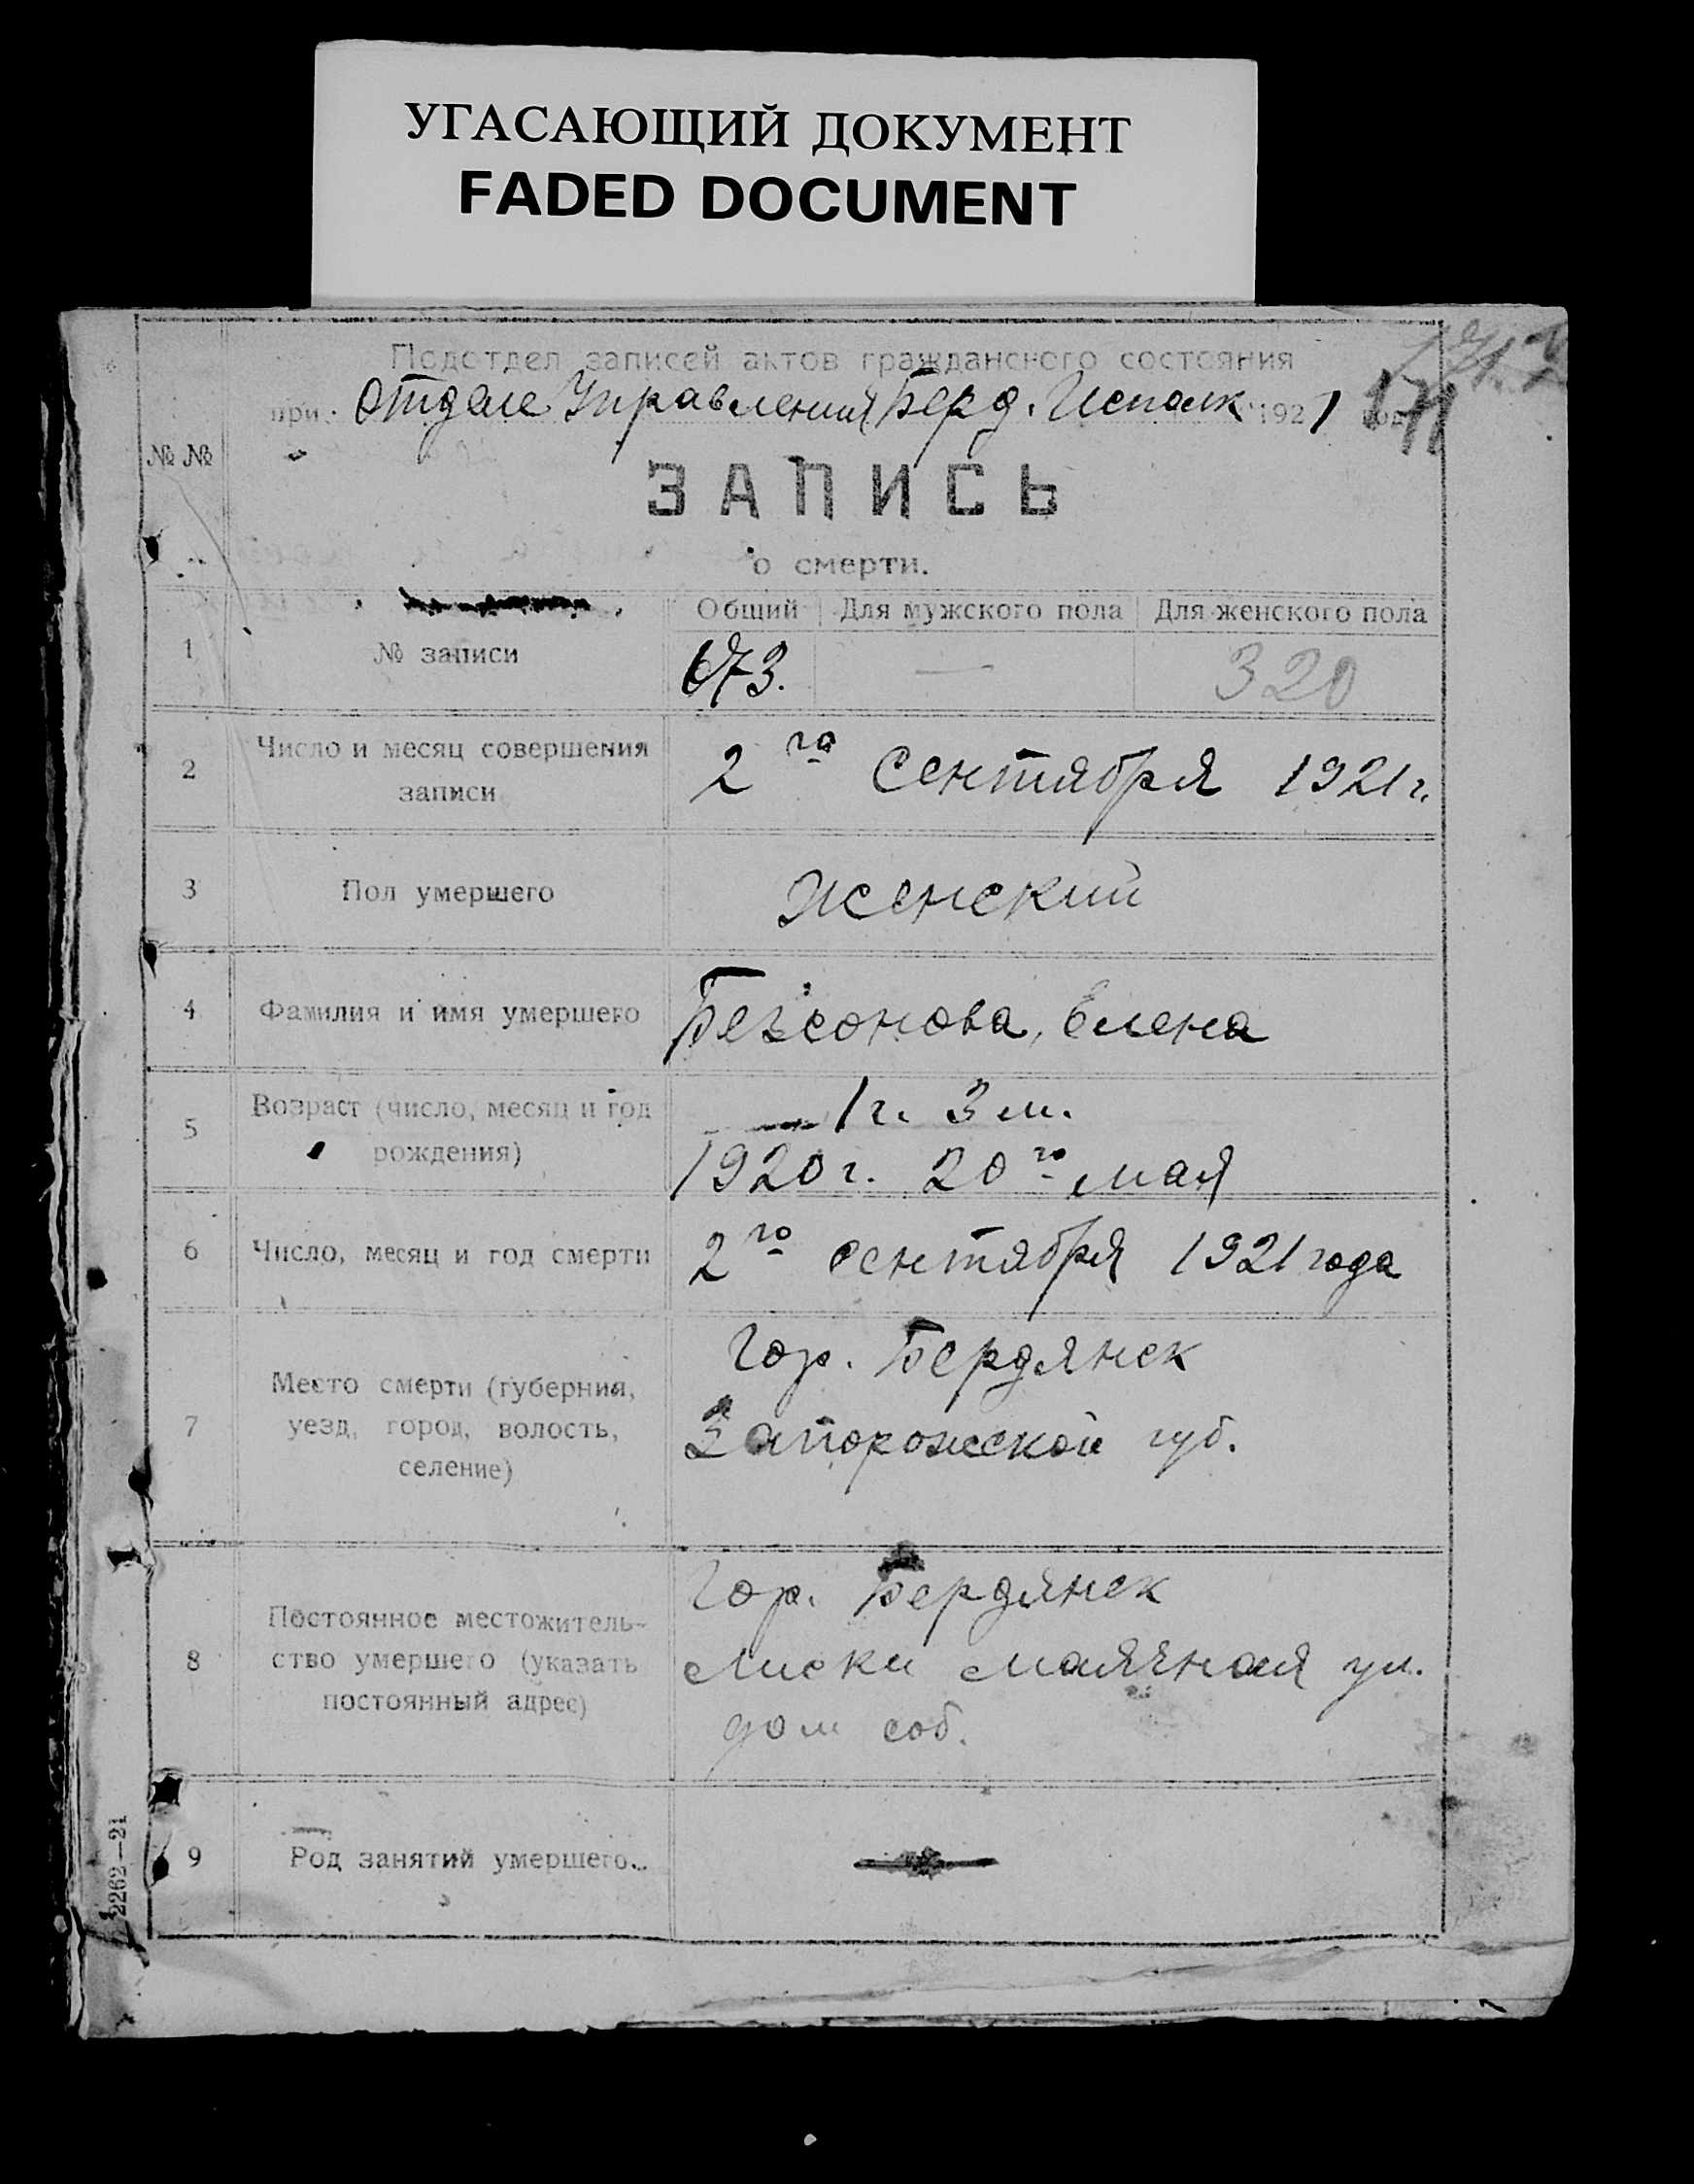 УГАСАЮЩИЙ ДОКУМЕНТ
FADED DOCUMENT
Подотдел записей актов гражданского состояния
при Отделе Управления Берд. Исполк 1921
171
№ №
ЗАПИСЬ
о смерти.
Общий Для мужского пола Для женского пола
1 № записи 673. — 320
2 Число и месяц совершения
записи
2го Сентября 1921 г.
3 Пол умершего Женский
4 Фамилия и имя умершего Безсонова, Елена
5 Возраст (число, месяц и год
рождения)
1 г. 3 м.
1920 г. 20го мая
6 Число, месяц и год смерти 2го сентября 1921 года
7 Место смерти (губерния,
уезд, город, волость,
селение)
Гор. Бердянск
Запорожской губ.
8 Постоянное местожитель-
ство умершего (указать
постоянный адрес)
Гор. Бердянск
Лиски Маячная ул.
дом соб.
9 Род занятий умершего... —
2262—21